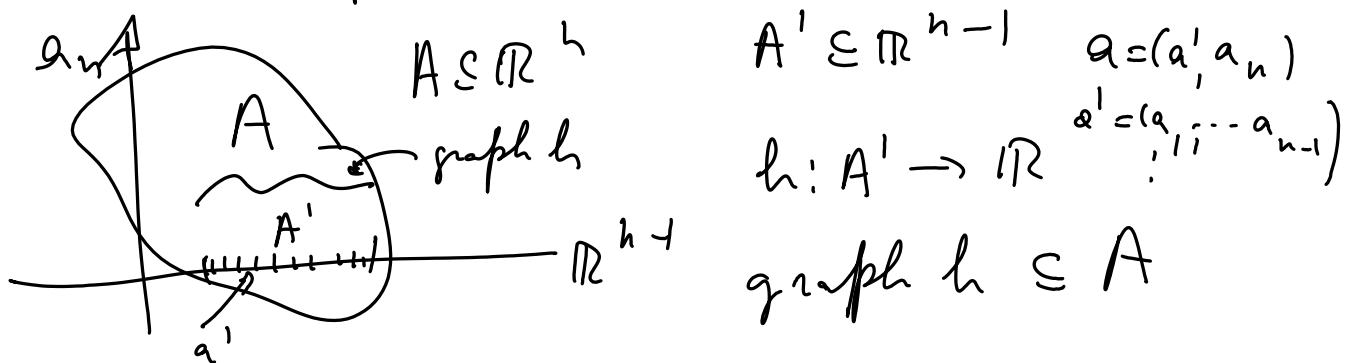 aₙ
A ⊆ ℝⁿ
A
graph h
A'
ℝⁿ⁻¹
a'
A' ⊆ ℝⁿ⁻¹
a = (a', aₙ)
a' = (a₁, ... aₙ₋₁)
h : A' → ℝ
graph h ⊆ A